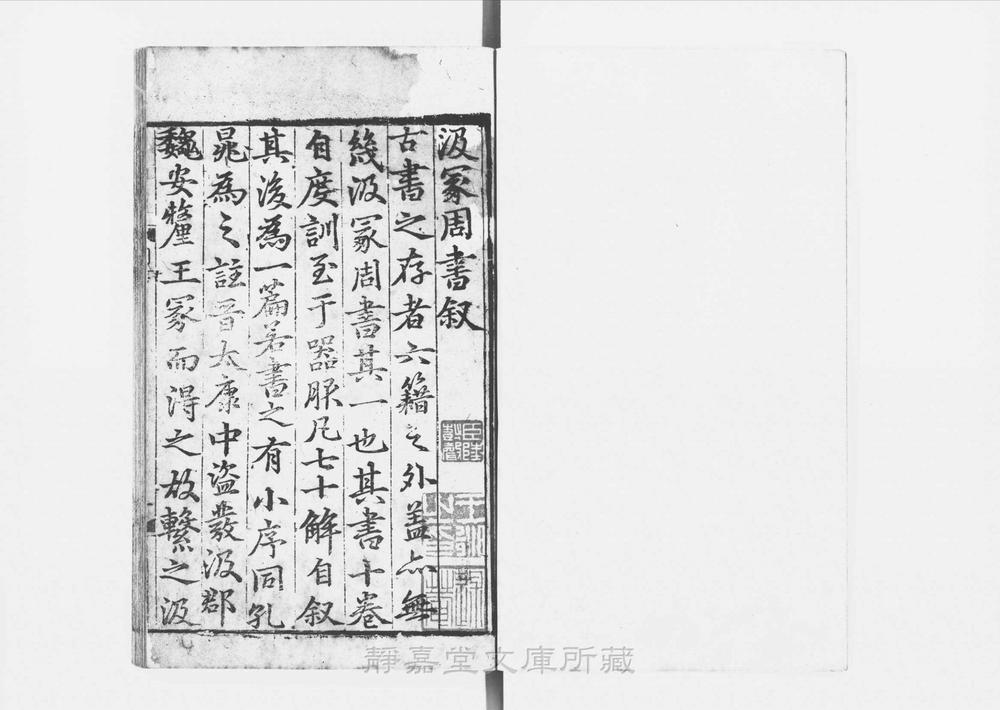 汲冢周書叙
古書之存者六籍之外盖亦無
幾汲冢周書其一也其書十卷
自度訓至于器服凡七十解自叙
其後為一篇若書之有小序同孔
晁為之註晉太康中盜發汲郡
魏安釐王冢而得之故繫之汲
靜嘉堂文庫所藏